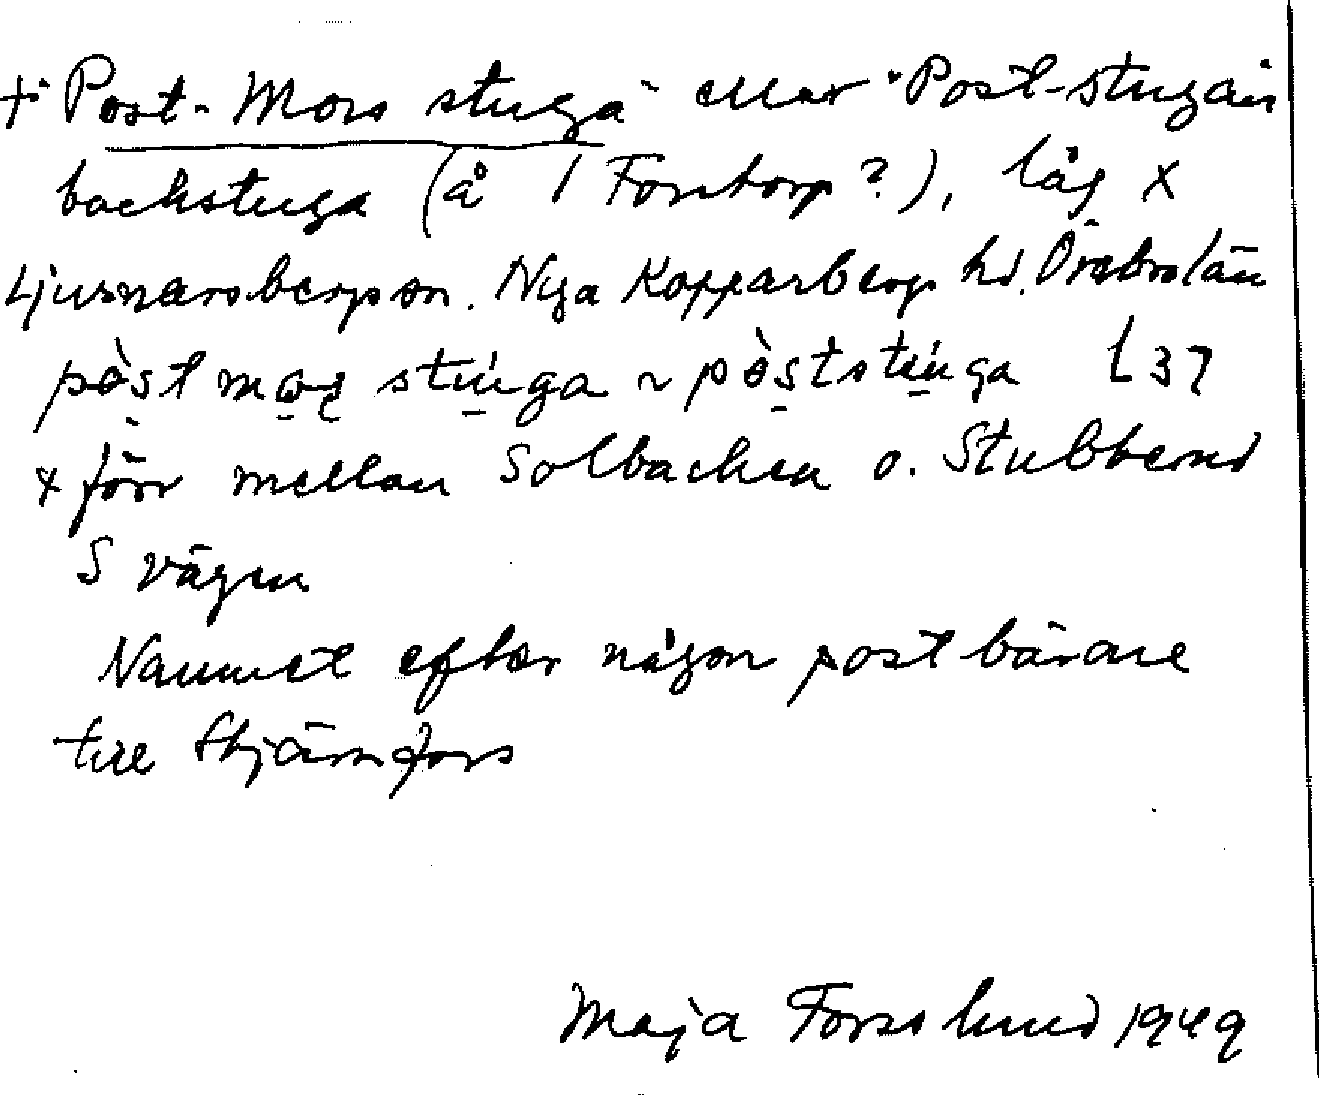 + "Post-Mors stuga" eller "Post-stugan"
backstuga (å 1 Forstorp?), låg x
Ljusnarsbergs sn. Nya Kopparbergs hd. Örebro län
pòst mos stúga ~ pòststúga L 37
x förr mellan Solbacken o. Stubbend
S vägen
Namnet efter någon postbärare
till Stjärnfors
Maja Forsslund 1949